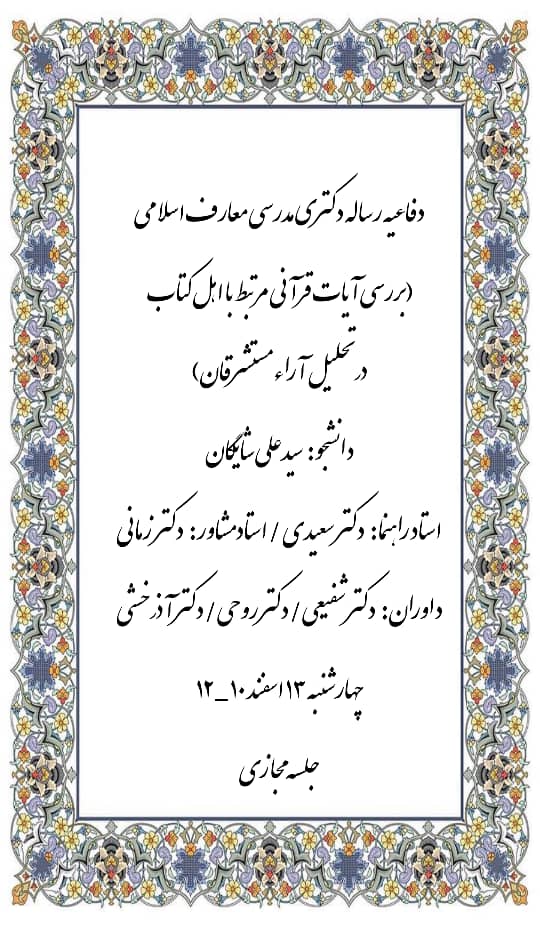 دفاعیه رساله دکتری مدرسی معارف اسلامی
(بررسی آیات قرآنی مرتبط با اهل کتاب
در تحلیل آراء مستشرقان)
دانشجو: سید علی شایگان
استاد راهنما: دکتر سعیدی / استاد مشاور: دکتر زمانی
داوران: دکتر شفیعی / دکتر روحی / دکتر آذرخشی
چهارشنبه ۱۳ اسفند ۱۰_۱۲
جلسه مجازی